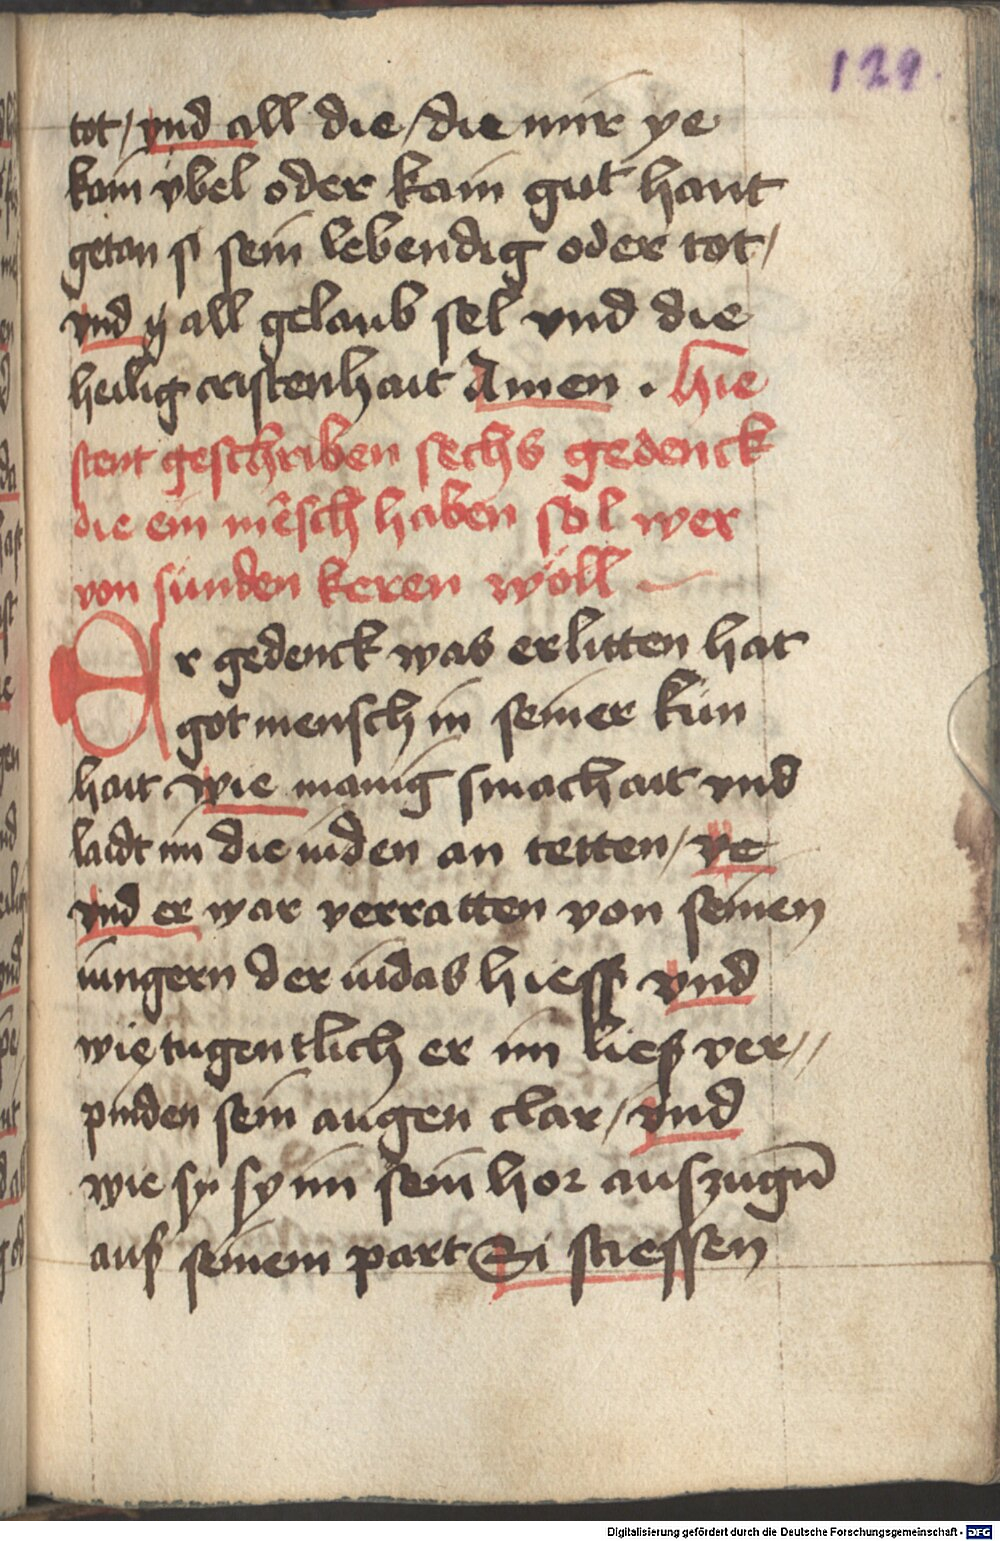 129.
tot / vnd all die / die mir ye
kain vbel oder kain gut hant
getan si sein lebendig oder tot /
vnd all gelaub sel vnd die
heilig cristenhait Amen . hie
stent geschriben sechs gedenck
die ein mēsch haben sol wer
von sunden keren wöll
Er gedenck was erlitten hat
got mensch in seiner kin
hait wie manig smachait vnd
laidt im die iuden an tetten / ye
vnd er war verratten von seinen
iungern der iudas hiess vnd
wie tugentlich er im liess ver //
pinden sein augen clar / vnd
wie sy sy im sein hor auszugn̄
aus seinem part Si stiessen
Digitalisierung gefördert durch die Deutsche Forschungsgemeinschaft - DFG